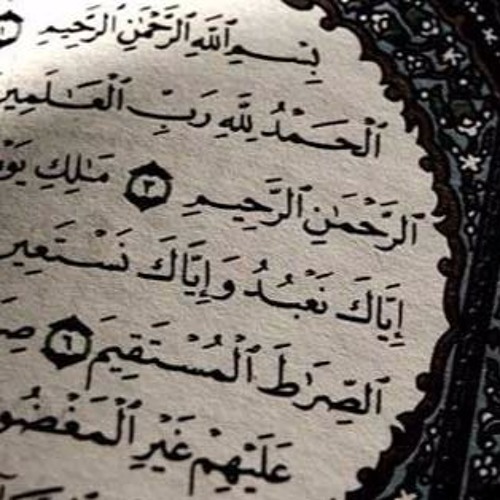 بِسْمِ ٱللَّهِ ٱلرَّحْمَٰنِ ٱلرَّحِيمِ
ٱلْحَمْدُ لِلَّهِ رَبِّ ٱلْعَٰلَمِين
ٱلرَّحْمَٰنِ ٱلرَّحِيمِ ٣ مَٰلِكِ يَوْ
إِيَّاكَ نَعْبُدُ وَإِيَّاكَ نَسْتَعِين
ٱلصِّرَٰطَ ٱلْمُسْتَقِيمَ ٦ صِ
عَلَيْهِمْ غَيْرِ ٱلْمَغْضُو